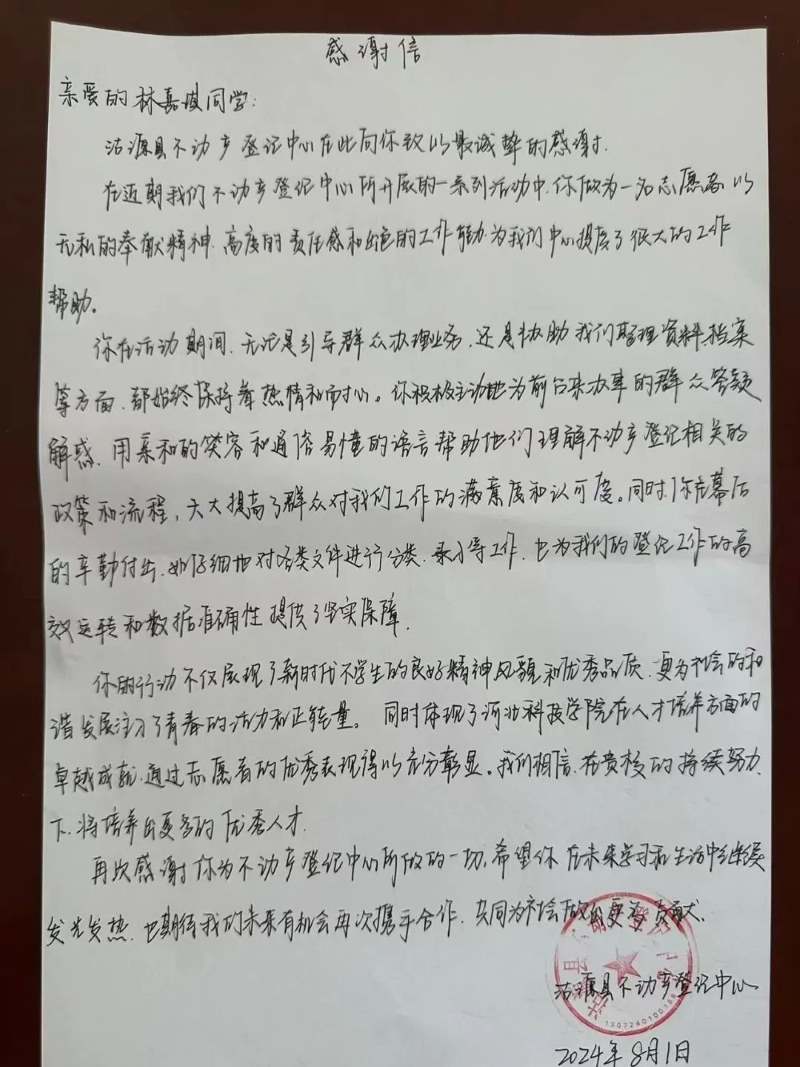 感谢信
亲爱的林嘉琪同学:
沽源县不动产登记中心在此向你致以最诚挚的感谢.
在近期我们不动产登记中心所开展的一系列活动中.你做为一名志愿者以
无私的奉献精神.高度的责任感和出色的工作能力为我们中心提度了很大的工作
帮助。
你在活动期间.无论是引导群众办理业务,还是协助我们整理资料.档案
等方面,都始终保持着热情和耐心。你积极主动地为前后来办事的群众答疑
解惑.用亲和的笑容和通俗易懂的语言帮助他们理解不动产登记相关的
政策和流程,大大提高了群众对我们工作的满意度和认可度。同时.你在幕后
的辛勤付出.如仔细地对各类文件进行分类.录入等工作.也为我们的登记工作的高
效运转和数据准确性提供了坚实保障.
你的行动不仅展现了新时代大学生的良好精神风貌和优秀品质.更为社会的和
谐发展注入了青春的活力和正能量。同时体现了河北科技学院在人才培养方面的
卓越成就.通过志愿者的优秀表现得以充分彰显。我们相信.在贵校的持续努力
下.将培养出更多的优秀人才.
再次感谢你为不动产登记中心所做的一切.希望你在未来学习和生活中继续
发光发热.也期待我们未来有机会再次携手合作.共同为社会做出更多贡献.
沽源县不动产登记中心
2024年8月1日